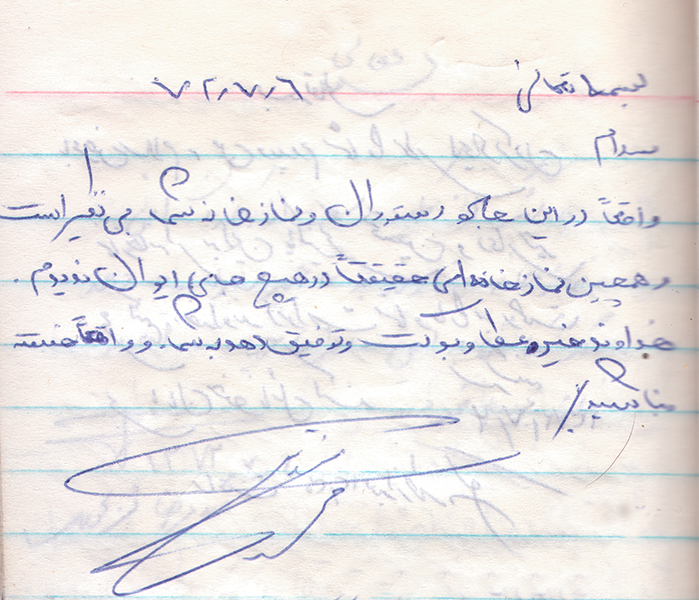 بسمه تعالی ۷۲٫۷٫۶
سلام
واقعاً در این جا کو رستوران و نمازخانه شما بی نظیر است
و همچین نمازخانه‌ای حقیقتاً در هیچ جای ایران ندیدم.
خداوند خیر عطا و برکت و توفیق دهد به شما. و واقعاً خسته
نباشید